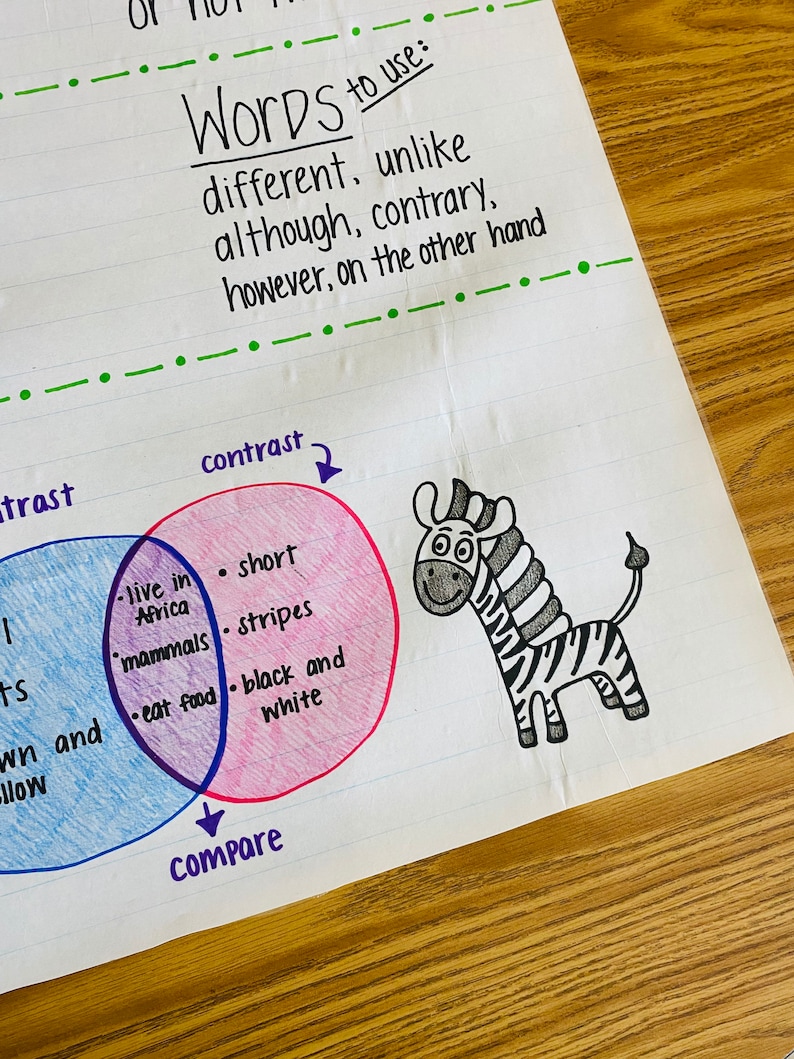 or not
Words to use:
different, unlike
although, contrary,
however, on the other hand
contrast
trast
l
ts
wn and
llow
• live in
Africa
• mammals
• eat food
• short
• stripes
• black and
white
compare